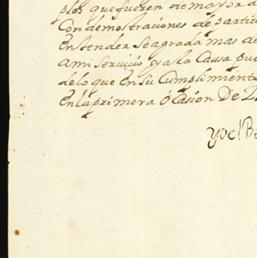 blos que fueren de mayor d
Con demostraciones de partic
entender se agrada mas de
a mi servicio y a la Causa pu
de lo que en su Cumplimient
en la primera ocasion De
Yo el